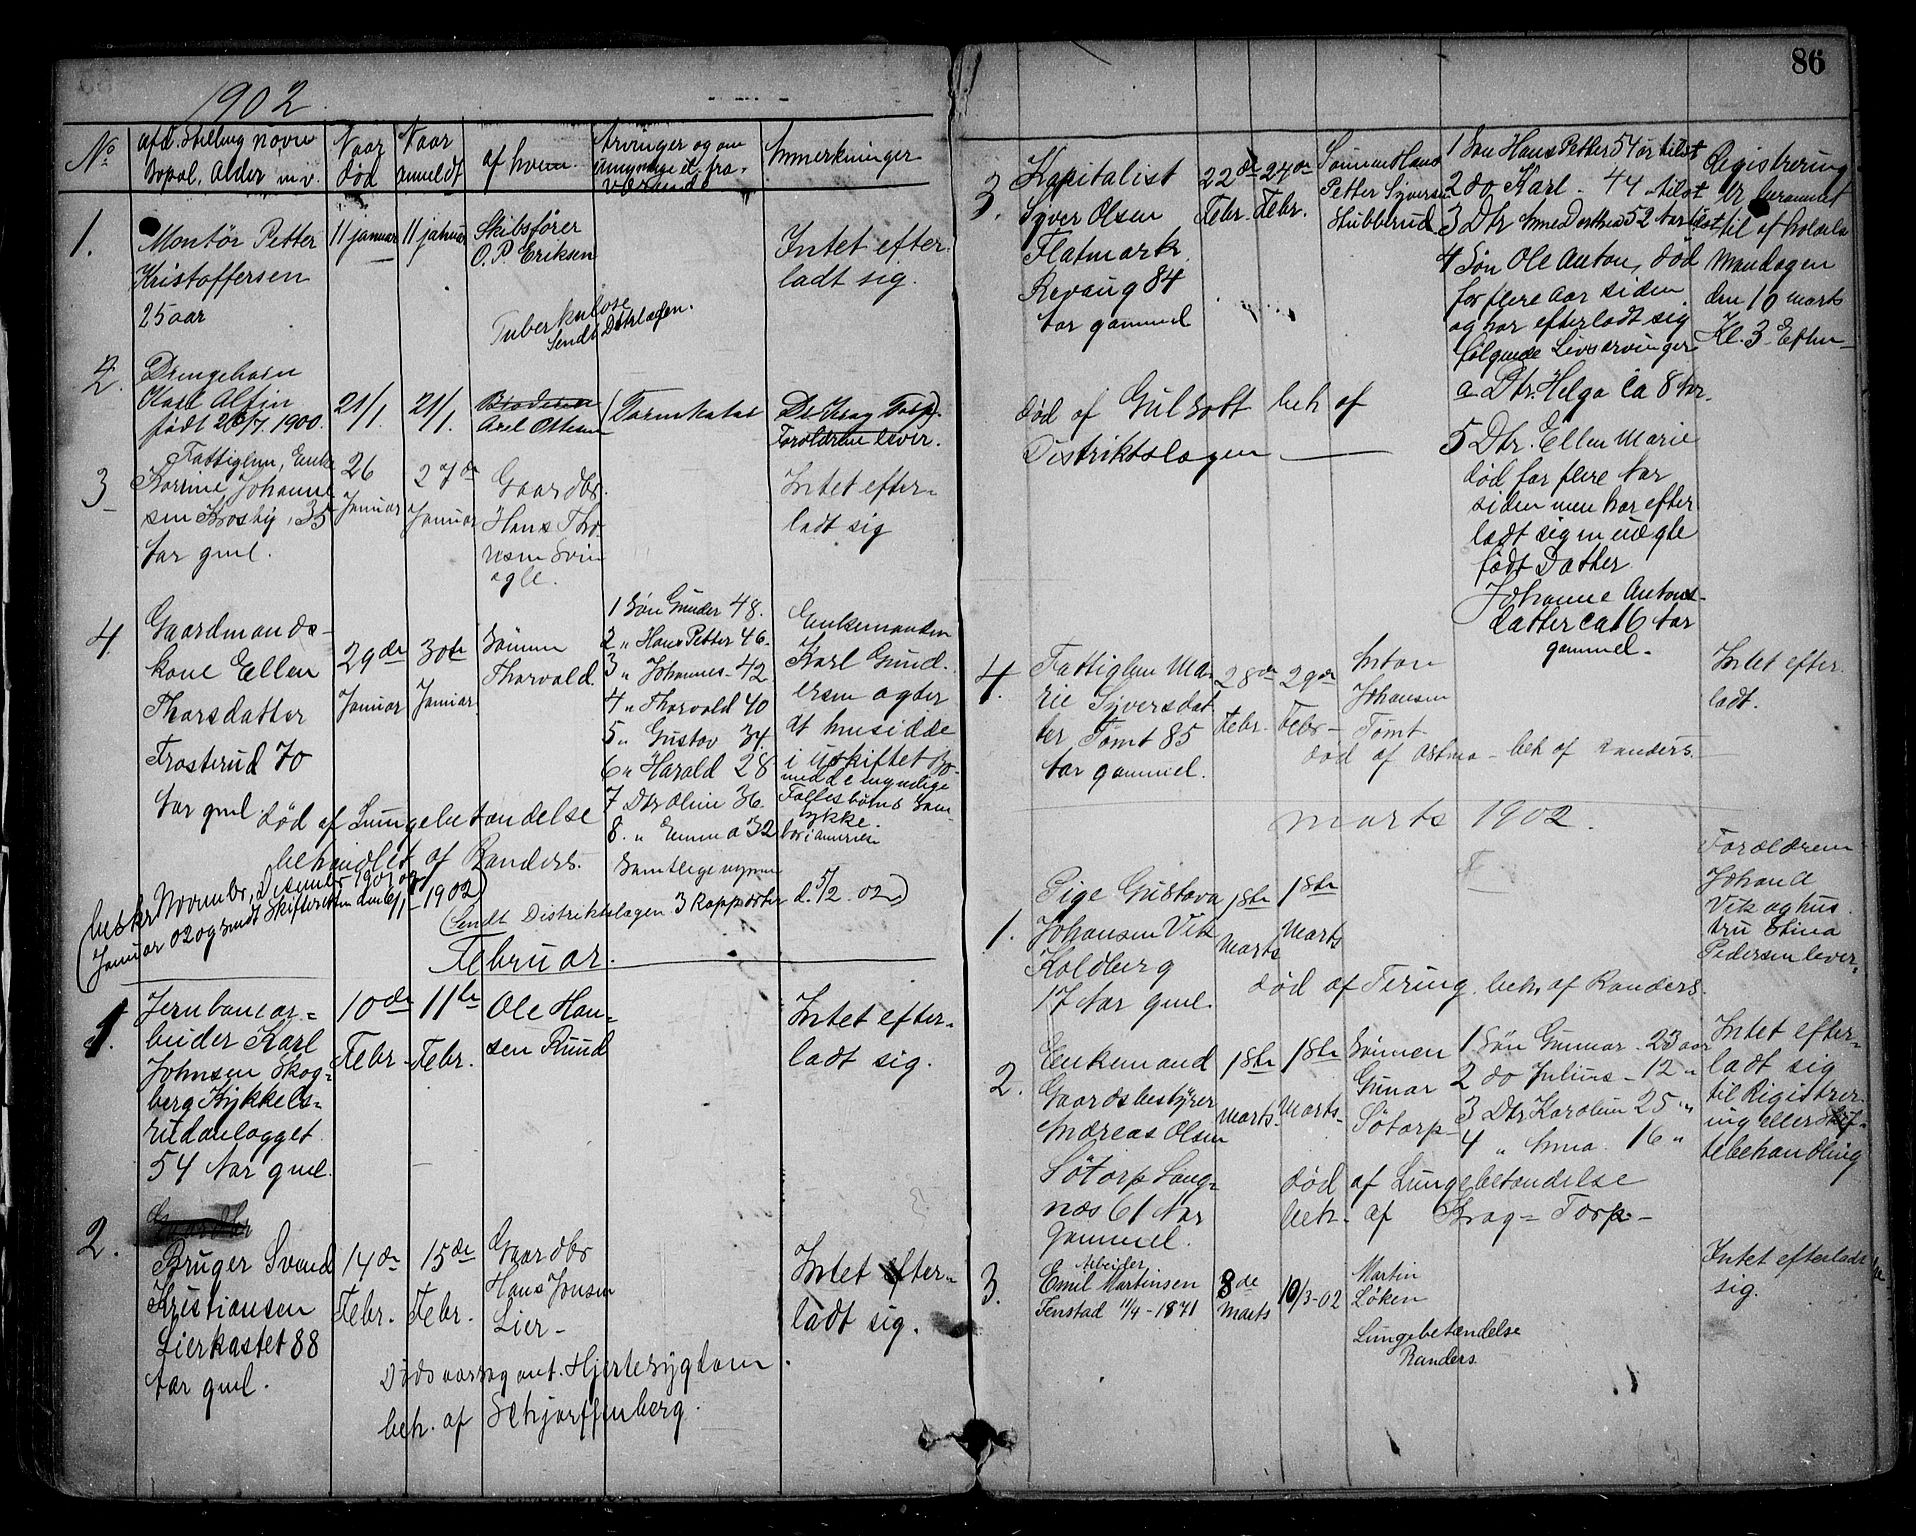 1902
No
afd. Stilling navn
Bopæl, Alder m.v.
Naar
død
Naar
anmeldt
af hvem
Arvinger og om
umyndige el. fra-
værende
Anmerkninger
1.
Montør Petter
Kristoffersen
25 aar
11 januar
11 januar
Skibsfører
O. P. Eriksen
Intet efter-
ladt sig.
Tuberkulose
Sendt Dstrlægen.
2.
Drengebarn
Karl Alfin
født 26/7. 1900.
21/1.
21/1.
Axel Ottesen
(Tarmkatar
Dr. Krag Torp).
Forældrene lever.
3
Fattiglem, Enke
Karine Johanne
sen Krosby, 35
Aar gml.
26
Januar
27de
Januar
Gaardbr.
Hans Tho
resen Svin
Intet efter-
ladt sig
4.
Gaardmands-
kone Ellen
Thorsdatter
Frosterud 70
Aar gml.
29de
Januar
30te
Januar
Sønnen
Thorvald.
1 Søn Gunder 48.
2 „ Hans Petter 46.
3 „ Johannes - 42
4 „ Thorvald 40
5 „ Gustav 34.
6 „ Harald 28
7 Dtr Oline 36.
8. „ Emma 32
Enkemanden
Karl Gund-
ersen agter
at hensidde
i uskiftet Bo
med de myndige
Fællesbørns Sam-
tykke.
død af Lungebetændelse
behandlet af Randers.
(beskr Novembr, Desembr 1901 og
Januar 02 og sendt Skifteretten den 6/1 1902)
(Sendt Distriktslægen 3 Rapporter d. 5/2. 02)
Februar.
1.
Jernbanear-
beider Karl
Johnsen Skog-
berg Kykkels-
rudanlægget
54 Aar gml.
10de
Febr.
11te
Febr.
Ole Han-
sen Ruud
Intet efter-
ladt sig.
2.
Gaardbr
Bruger Svend
Kristiansen
Lierkastet 88
Aar gml.
14de
Febr.
15de
Febr.
Gaardbr
Hans Jensen
Lier-
Intet efter-
ladt sig.
Dødsaarsag ant. Hjertesygdom
beh. af Schjarffenberg.
86
3.
Kapitalist
Syver Olsen
Flatmark
Revaug 84
Aar gammel
22de
Febr.
24de
Febr.
Sønnen Hans
Petter Syversen
Stubberud
1 Søn Hans Petter 54 Aar tilst
2 do Karl - 44 - tilst
3 Dtr Anne Dorthea 52 Aar tilst
4 Søn Ole Anton, død
for flere Aar siden
og har efterladt sig
følgende Livsarvinger
a Dtr. Helga ca 8 Aar.
5 Dtr. Ellen Marie
død for flere Aar
siden men har efter
ladt sig en uægte
født Datter
Johanne Antons-
datter ca 16 Aar
gammel.
Registrering
er berammet
til afholdelse
Mandagen
den 10 marts
Kl. 3 Efterm
død af Gulsott beh af
Distriktslægen
4.
Fattiglem Ma-
rie Syversdat
ter Tomt 85
Aar gammel.
28de
Febr.
29de
Febr-
Anton
Johansen
Tomt
Intet efter-
ladt.
død af Astma - beh af Randers.
marts 1902.
1.
Pige Gustava
Johansen Vik
Koldberg
17 Aar gml.
18te
Marts
18te
Marts
Forældrene
Johan A
Vik og hus-
tru Stina
Pedersen lever.
død af Tering. beh. af Randers.
2.
Enkemand
Gaardsbestyrer
Andreas Olsen
Søtorp Lang-
næs 61 Aar
gammel.
18te
Marts.
18te
Marts.
Sønnen
Gunar
Søtorp
1 Søn Gunnar - 23 aar
2 do Julius - 12 „
3 Dtr Karoline 25 „
4 „ Anna. 16 „
Intet efter-
ladt sig
til Rigistrer-
ing eller Skif-
tebehandling
død af Lungebetændelse
beh. af Krag - Torp -
3.
Arbeider
Emil Martinsen
Tenstad 11/4 - 1871
8de
marts
10/3-02
Martin
Løken
Intet efterladt
sig.
Lungebetændelse
Randers